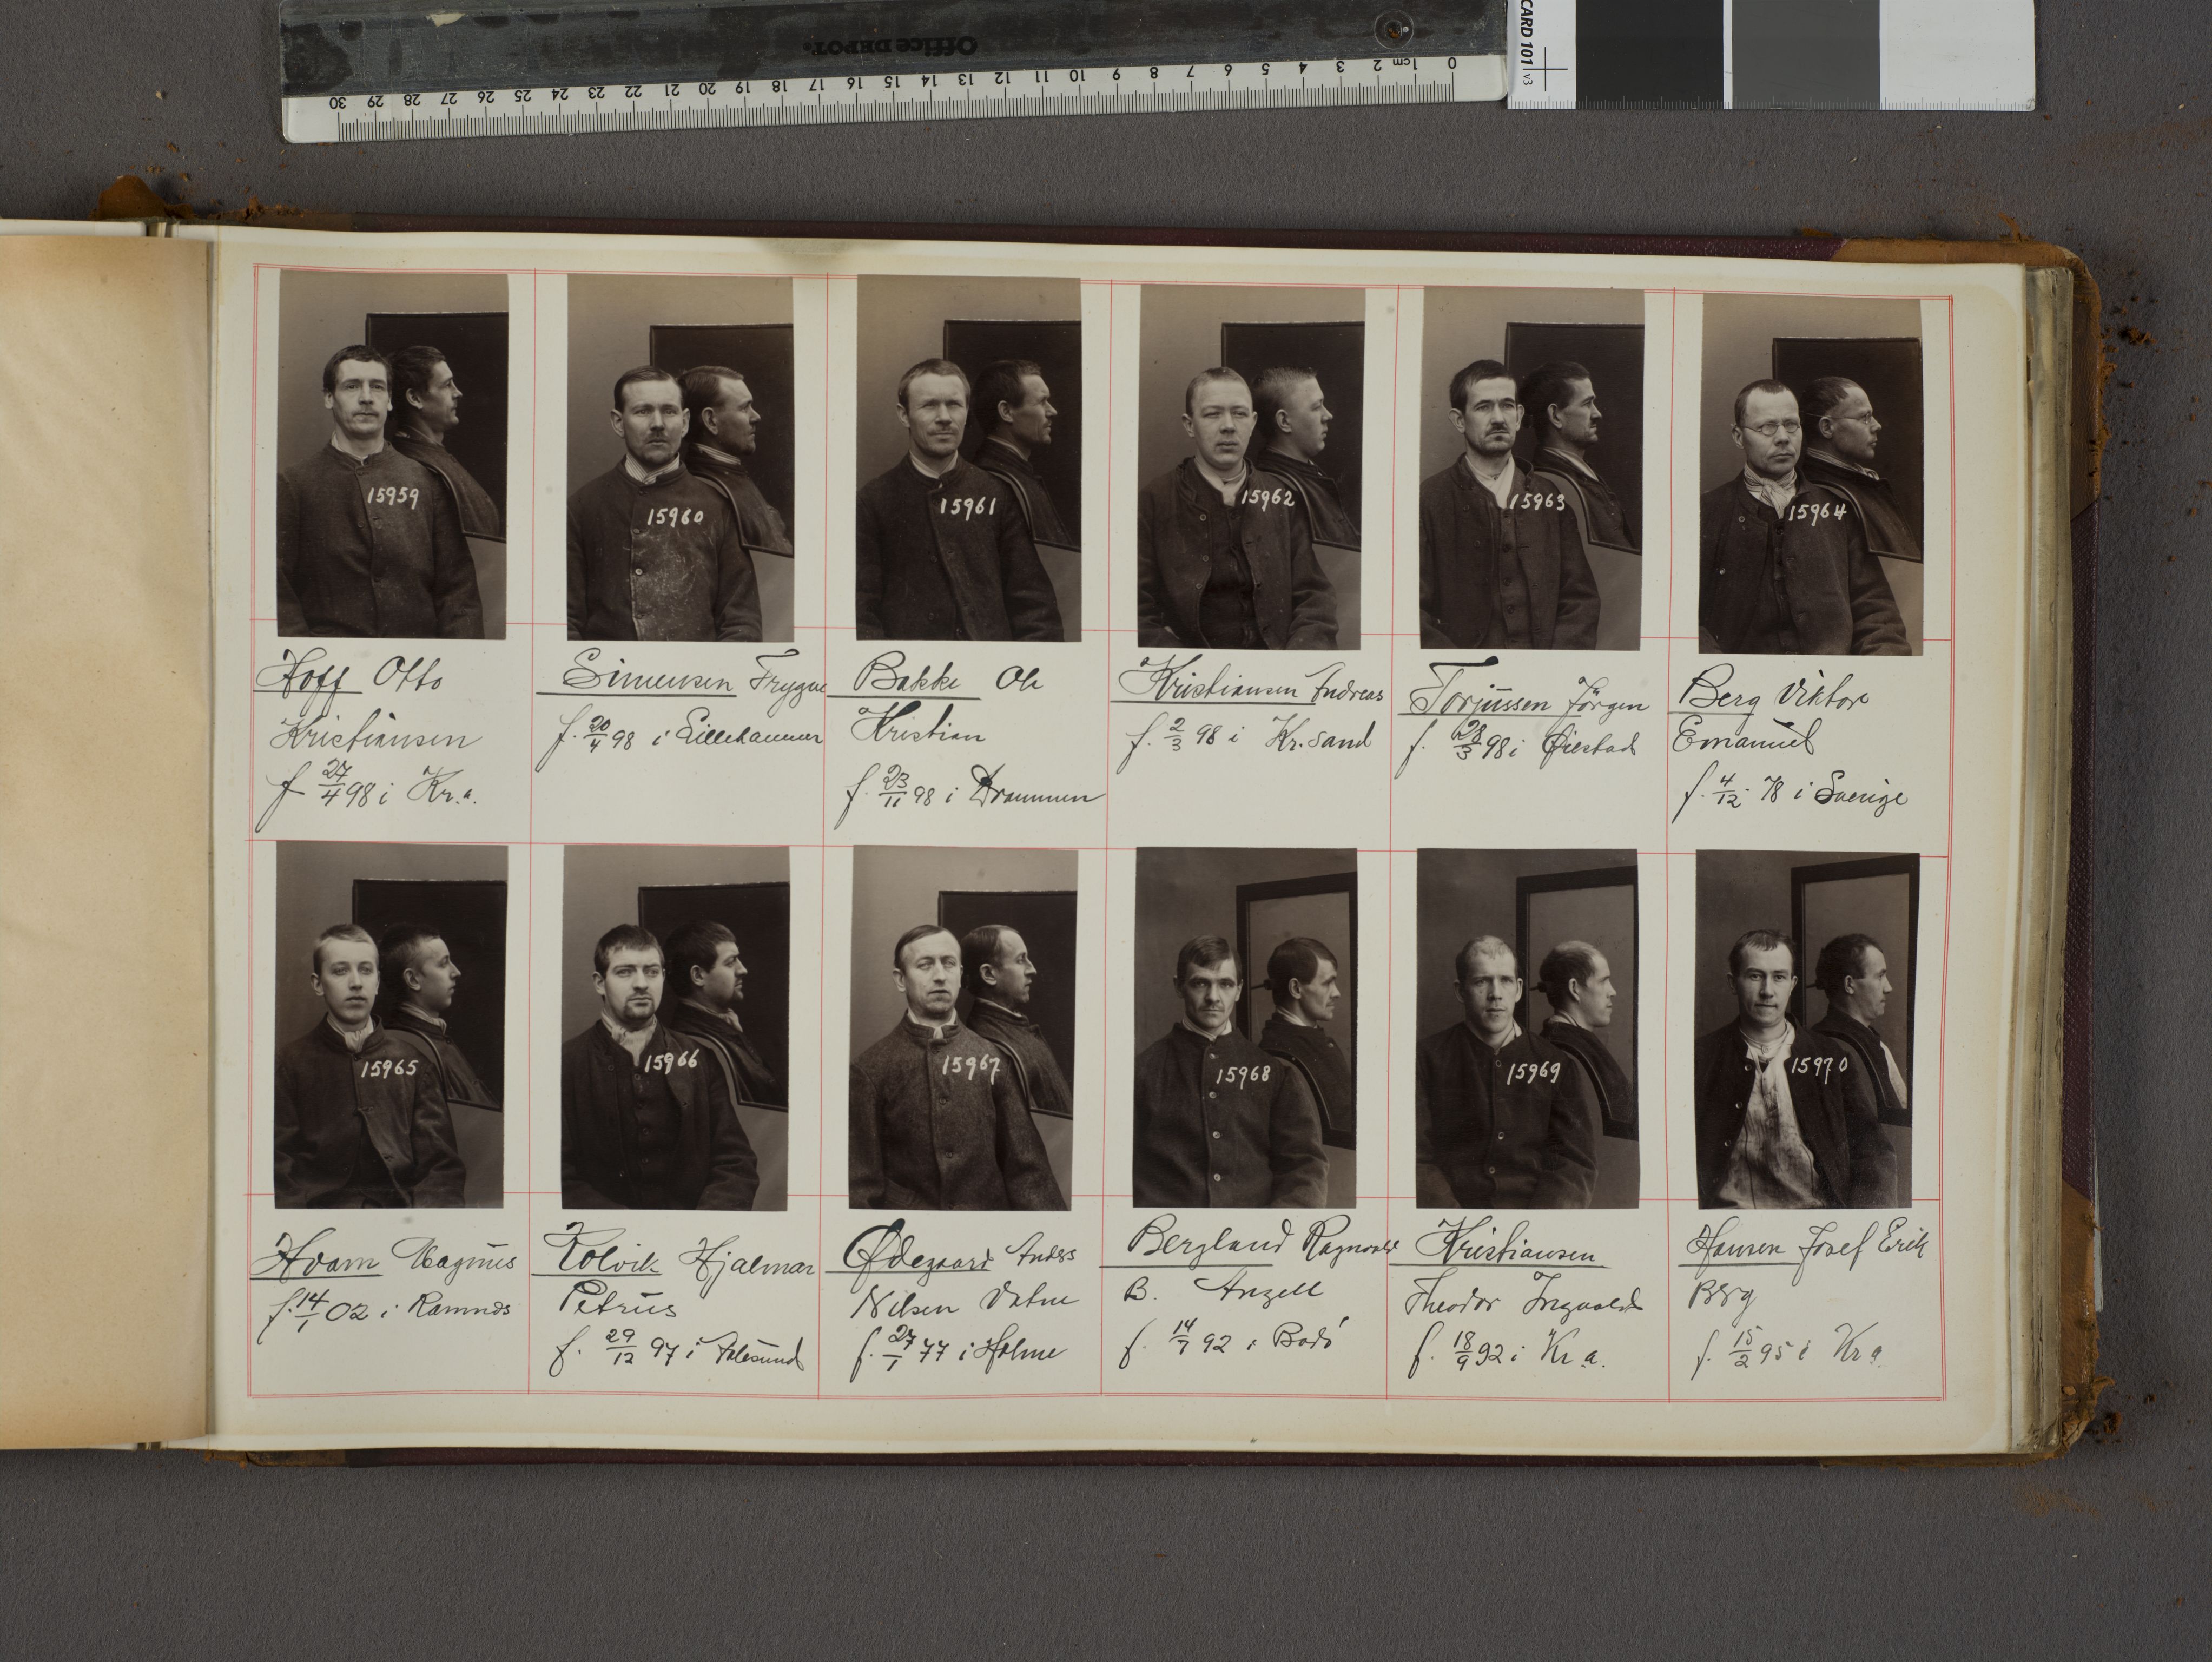 Office DEPOT.
0 1cm 2 3 4 5 6 7 8 9 10 11 12 13 14 15 16 17 18 19 20 21 22 23 24 25 26 27 28 29 30
CARD 101 v3
15959
15960
15961
15962
15963
15964
Hoff Otto
Kristiansen
f 27/4 98 i Kr.a.
Simensen Trygve
f. 20/4 98 i Lillehammer
Bakke Ole
Kristian
f. 23/11 98 i Drammen
Kristiansen Andreas
f. 2/3 98 i Kr. sand
Torjussen Jörgen
f. 28/3 98 i Øiestad
Berg Viktor
Emanuel
f. 4/12. 78 i Sverige
15965
15966
15967
15968
15969
15970
Hvam Magnus
f. 14/1 02 i Ramnes
Kolvik Hjalmar
Petrus
f. 29/12 97 i Aalesund
Ødegaard Anders
Nilsen Vatne
f. 27/1 77 i Holme
Bergland Ragnvald
B. Angell
f. 14/7 92 i Bodö
Kristiansen
Theodor Ingvald
f. 18/9 92 i Kr.a.
Hansen Josef Erik
Berg
f. 15/2 95 i Kr a.